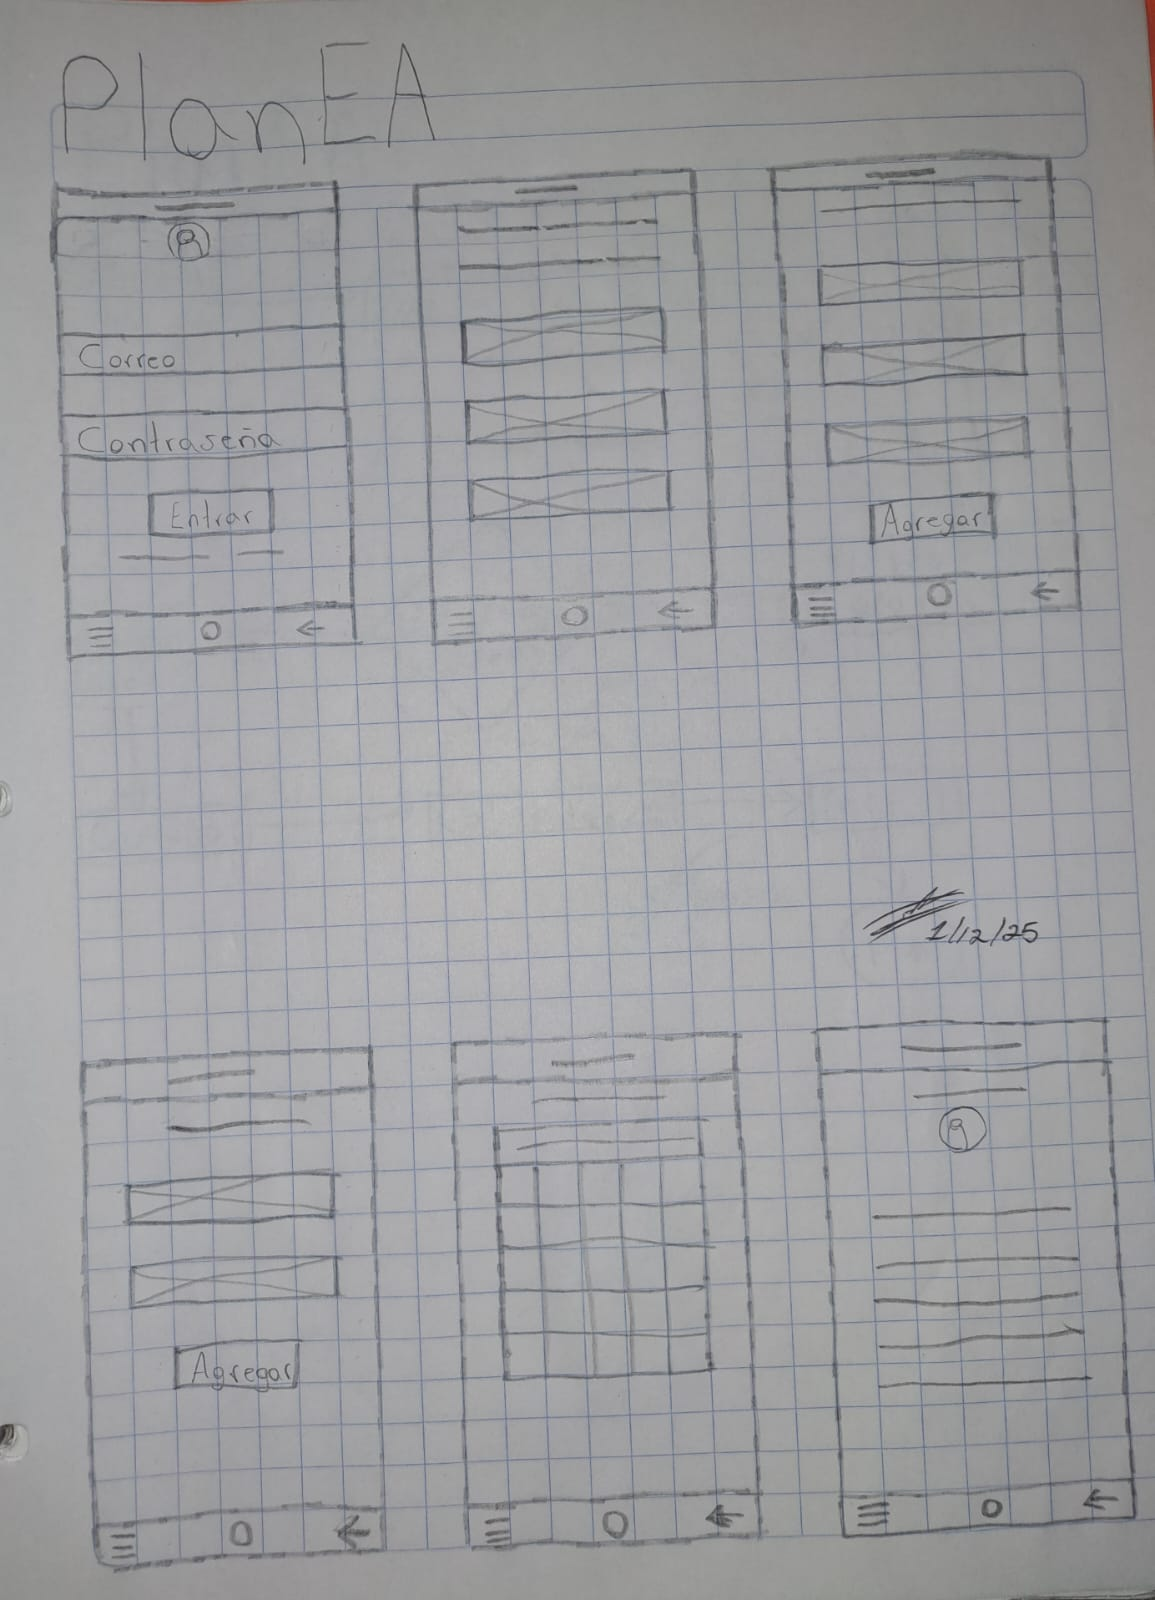 PlanEA
Correo
Contraseña
Entrar
Agregar
1/12/25
Agregar